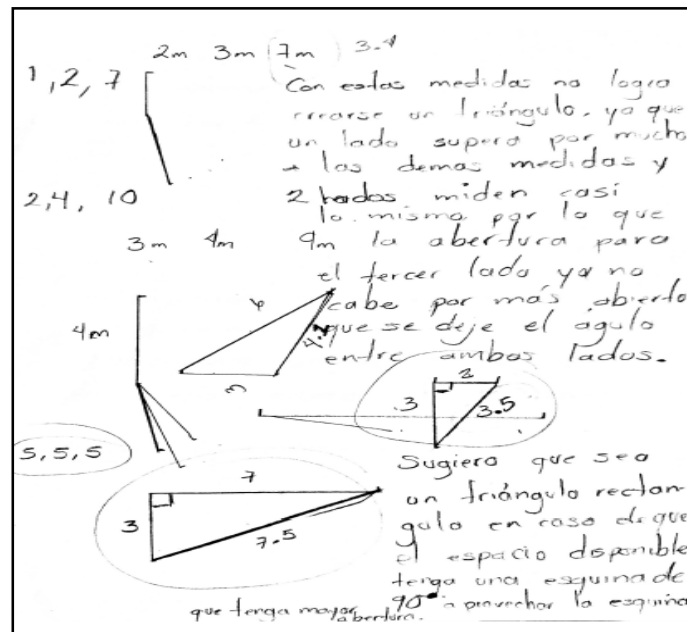 2m 3m 7m 3.4
1, 2, 7
Con estas medidas no logra
crearse un triángulo, ya que
un lado supera por mucho
a las demas medidas y
2, 4, 10
2 lados miden casi
lo mismo por lo que
3m 4m 9m la abertura para
el tercer lado ya no
cabe por más abierto
que se deje el águlo
entre ambos lados.
4m
6
4.2
3
2
3
3.5
5, 5, 5
7
3
7.5
Sugiero que sea
un triángulo rectan-
gulo en caso de que
el espacio disponible
tenga una esquina de
90° aprovechar la esquina
que tenga mayor abertura.